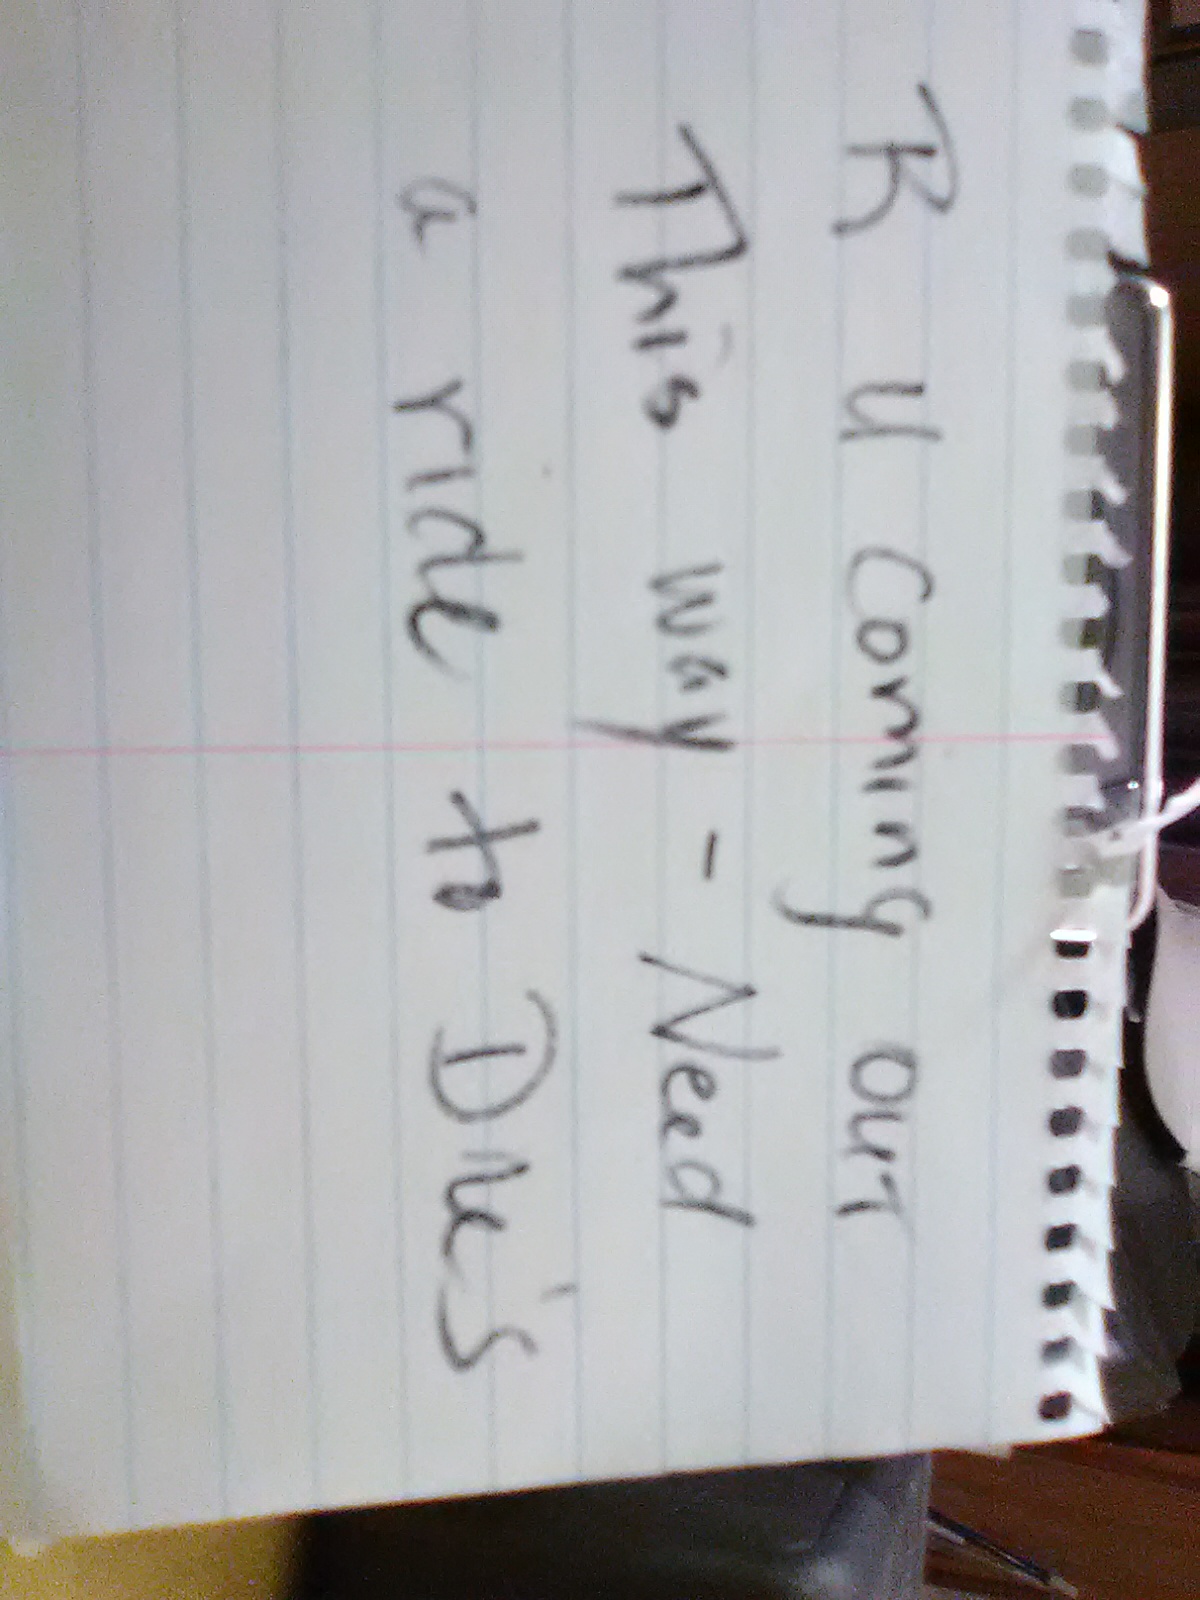 R U Coming out
This way - Need
a ride to Dre's